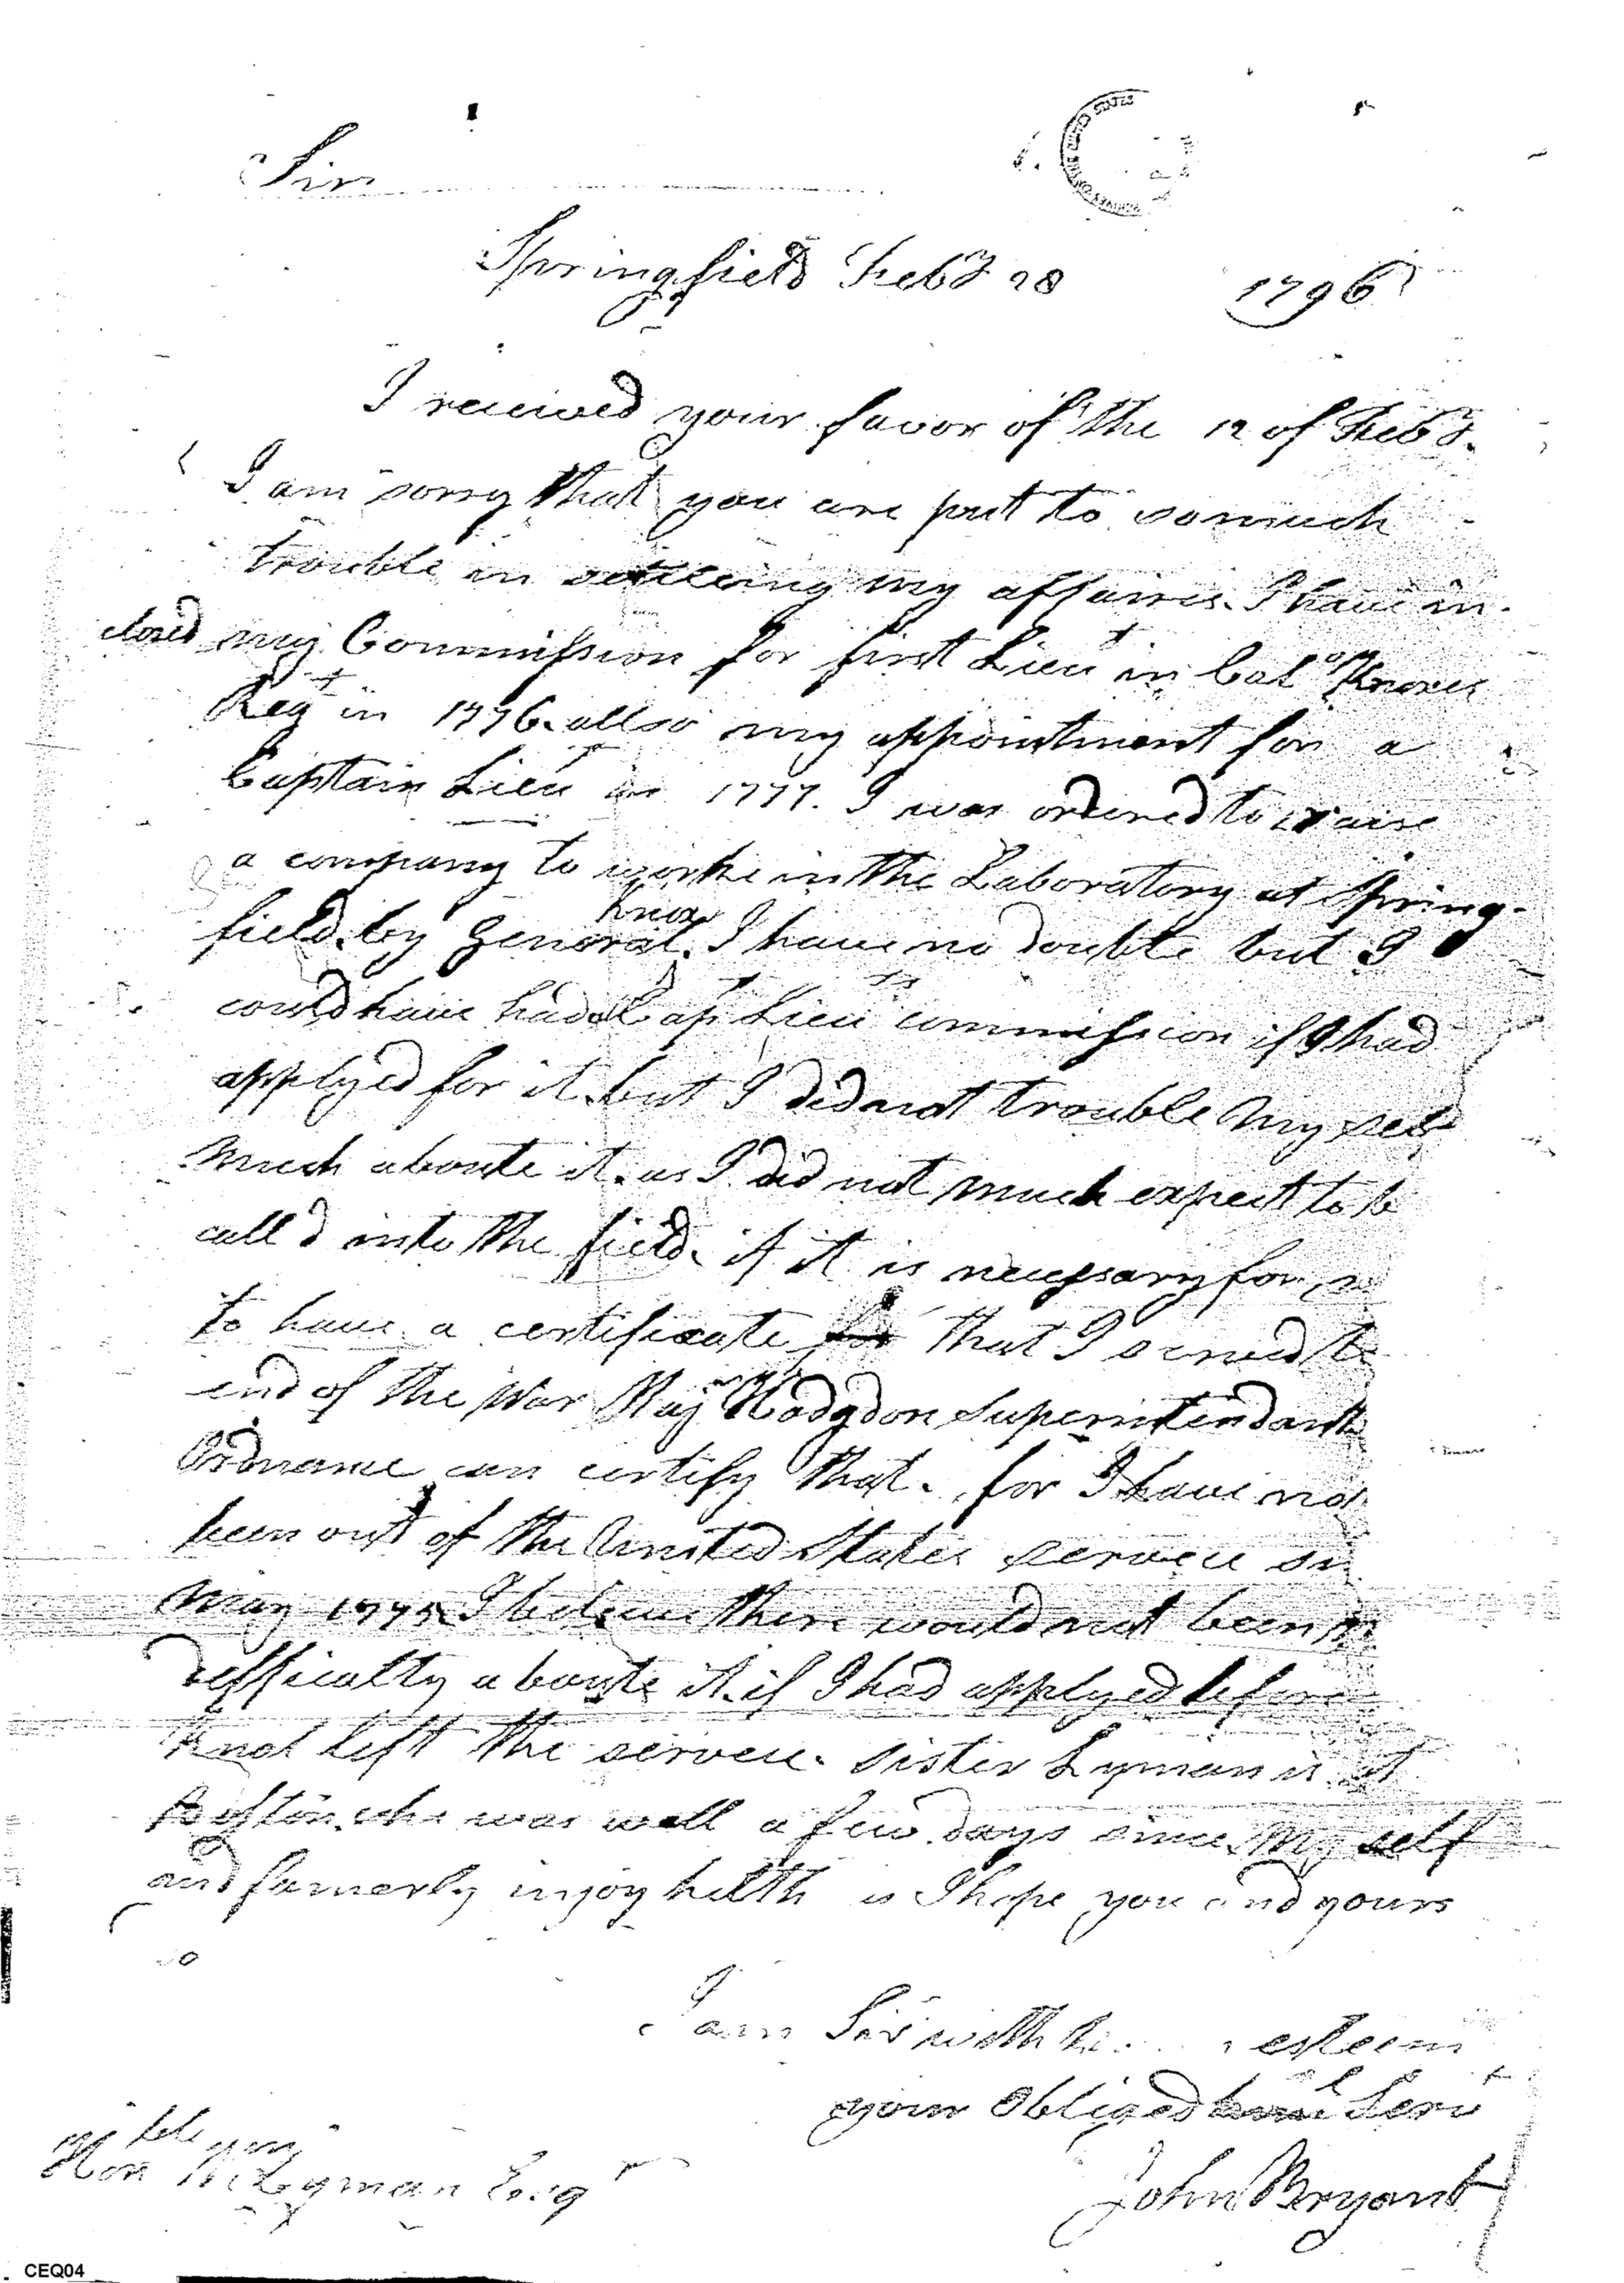 Sir
Springfield Feby 28 1796
I received your favor of the 12 of Feby.
I am sorry that you are put to somuch
trouble in settleing my affaires. I have in-
closed my Commission for first Lieut in Col Knoxes
Regt in 1776. allso my appointment for a
Captain Lieut in 1777. I was ordered to raise
a company to worke in the Laboratory at Spring-
field by General Knox. I have no doubte but I
could have had a Cap Lieuts commission if I had
applyed for it. but I did not trouble my self
much aboute it. as I did not much expect to be
call'd into the field. if it is necessary for
to have a certificate that I served the
end of the War Majr Hodgdon Superintendant
Ordnance can certify that. for I have not
been out of the United States service
May 1775 I beleive there would not been
diffficulty aboute it. if I had applyed before
left the servece. Sister Lyman is at
Boston. she was well a few days since. My self
and famerly injoy helth as I hope you and yours
do
I am Sir with esteem
your Obliged huml Servt
John Bryant
Honble Wm Lyman Esqr
CEQ04